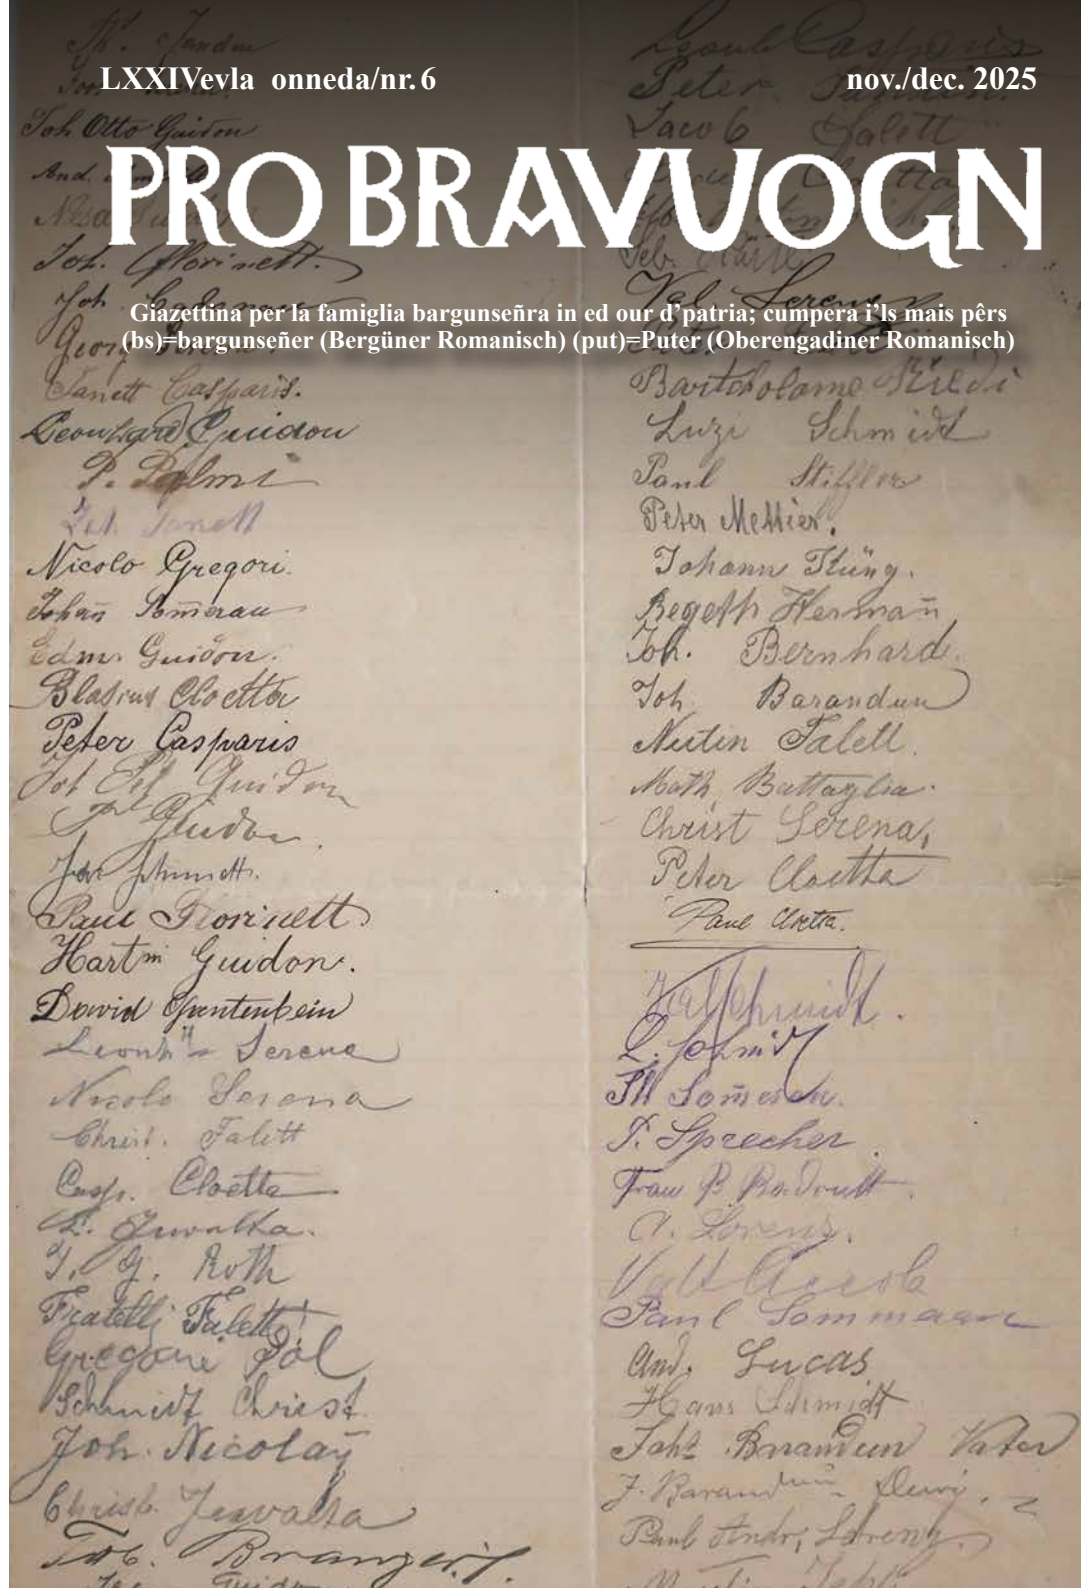 LXXIVevla onneda/nr. 6
nov./dec. 2025
PRO BRAVUOGN
Giazettina per la famiglia bargunseñra in ed our d’patria; cumpera i’ls mais pêrs
(bs)=bargunseñer (Bergüner Romanisch) (put)=Puter (Oberengadiner Romanisch)
Joh Otto Guidon
And.
Joh. Florinett.
Joh Cadonau
Georg Serena
Janett Casparis.
Leonhard Guidon
P. Palmi
Joh. Janett
Nicolo Gregori.
Johañ Som̄erau
Edm. Guidon.
Blasius Cloetta
Peter Casparis
Guidon
Guidon.
Schmidt.
Paul Florinett
Martin Guidon.
David Gantenbein
Serena
Nicolo Serena
Christ. Falett
Casp. Cloëtta
Z. Juvalta.
J. G. Roth
Fratelli Falett
Gregori Pol
Schmidt Christ.
Joh. Nicolaÿ
Christ. Juvalta
Joh. Branger
Guidon
Casparis
Peter
Jacob Falett
Cloetta
Seb.
Val. Serena
Bartholome
Luzi Schmidt
Paul Stiffler
Peter Mettier.
Johann Küng.
Regeth Hermañ
Joh. Bernhard.
Joh. Barandun
Nutin Falett.
Math. Battaglia.
Christ Serena,
Peter Cloetta
Paul Cloetta.
Schmidt.
L. Schmidt
Som̄erau.
P. Sprecher.
Frau B. Badrutt.
A. Lorenz.
Paul Sommerau
And. Lucas
Hans Schmidt
Johs Barandun Vater
J. Barandun
Paul Andr. Lorenz.